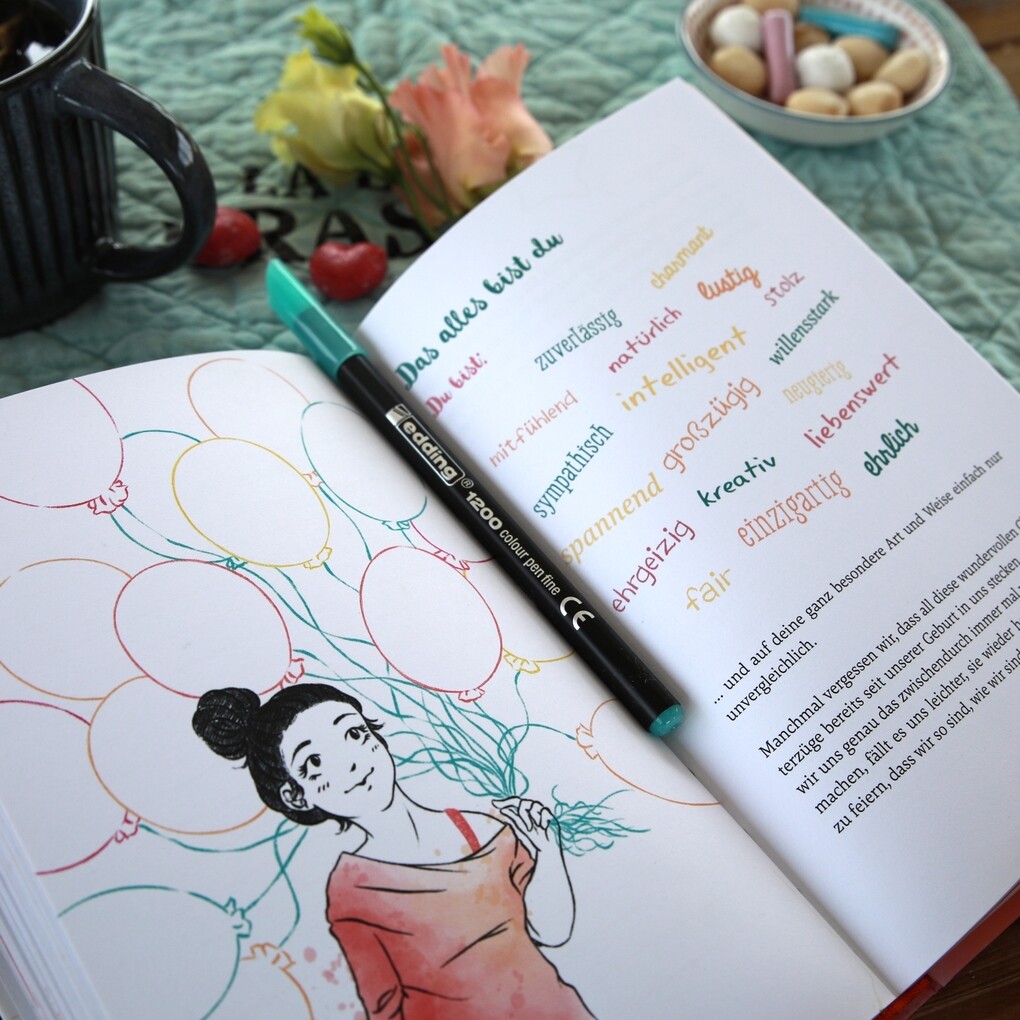 Das alles bist du
Du bist:
zuverlässig
charmant
mitfühlend
natürlich
lustig
stolz
sympathisch
intelligent
willensstark
spannend
großzügig
neugierig
ehrgeizig
kreativ
liebenswert
fair
einzigartig
ehrlich
... und auf deine ganz besondere Art und Weise einfach nur
unvergleichlich.
Manchmal vergessen wir, dass all diese wundervollen
terzüge bereits seit unserer Geburt in uns stecken
wir uns genau das zwischendurch immer mal
machen, fällt es uns leichter, sie wieder
zu feiern, dass wir so sind, wie wir sind
edding® 1200 colour pen fine CE